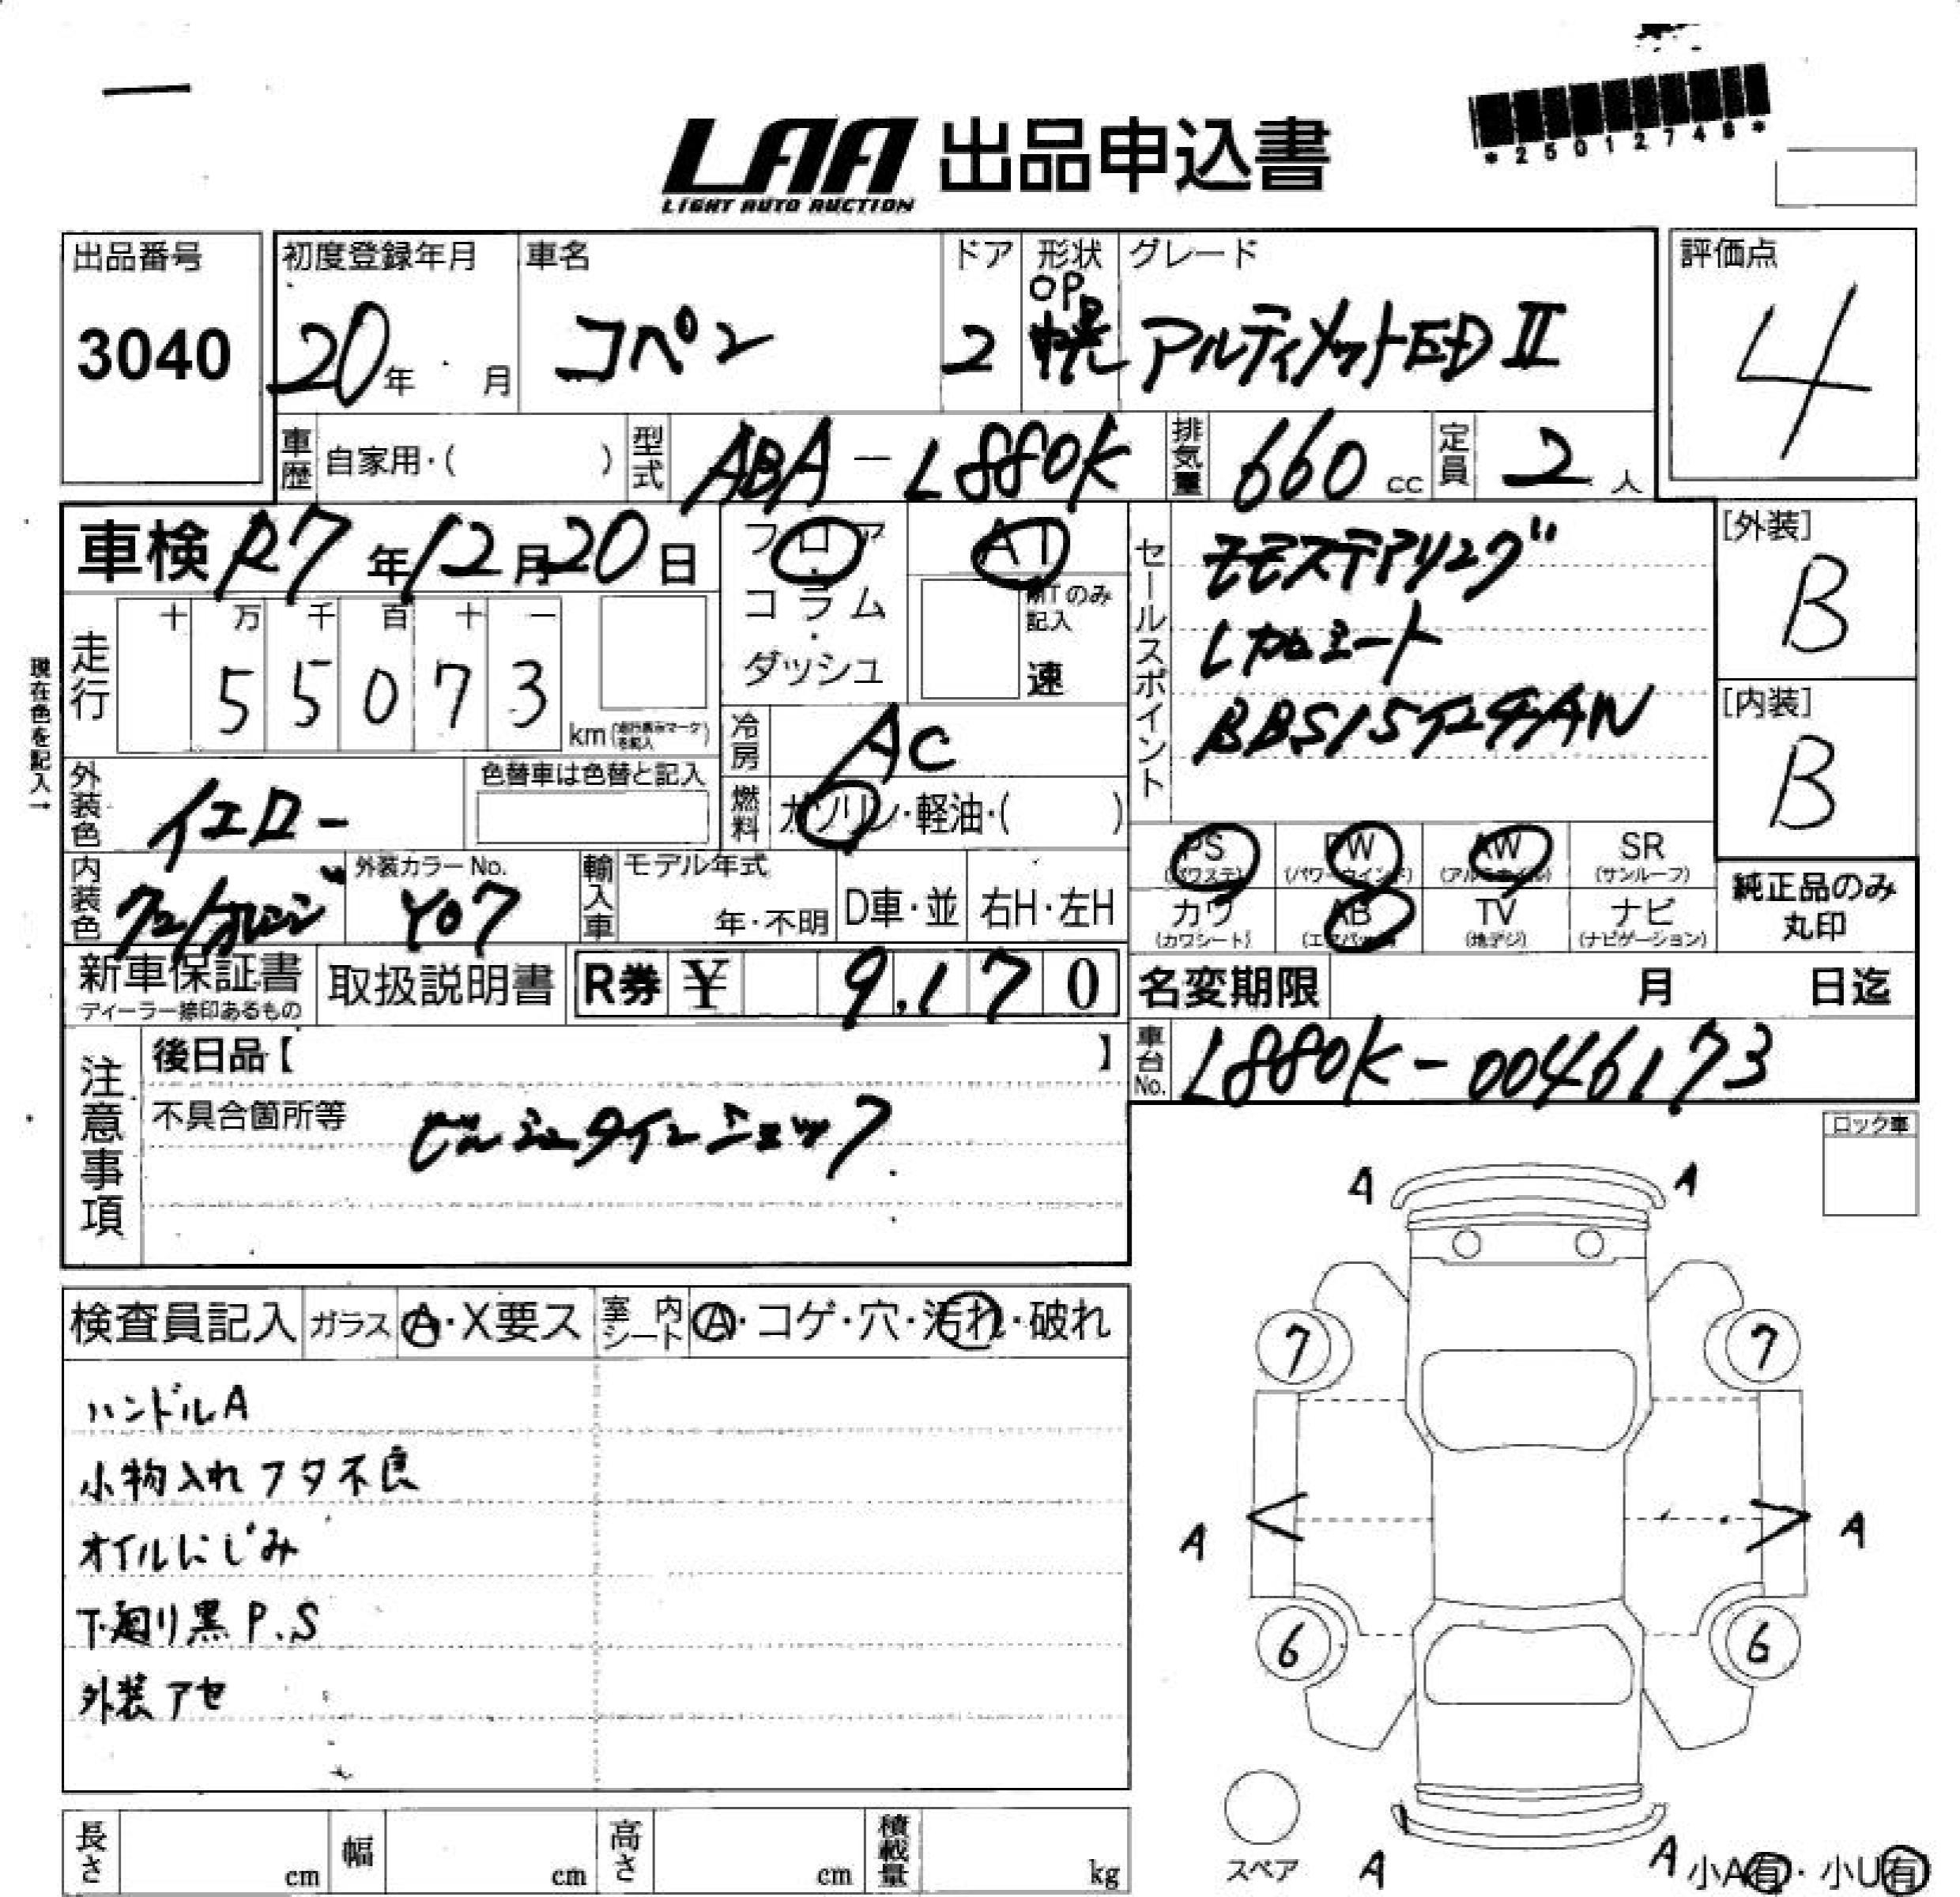 *25012748*
LAA 出品申込書
LIGHT AUTO AUCTION
出品番号
3040
初度登録年月
20年 月
車名
コペン
ドア
2
形状
OP
幌
グレード
アルティメットEDⅡ
評価点
4
車歴 自家用・( )
型式 ABA-L880K
排気量 660cc
定員 2人
車検 R7年12月20日
フロア・コラム・ダッシュ
AT
MTのみ記入
速
セールスポイント
モモステアリング
レカロシート
BBS15インチAW
[外装]
B
[内装]
B
現在色を記入→
走行
十 万 千 百 十 一
5 5 0 7 3
km
冷房 AC
燃料 ガソリン・軽油・( )
外装色 イエロー
色替車は色替と記入
内装色
外装カラーNo.
Y07
輸入車
モデル年式
年・不明
D車・並
右H・左H
PS (パワステ)
PW (パワーウインド)
AW (アルミホイル)
SR (サンルーフ)
カワ (カワシート)
AB (エアバック)
TV (地デジ)
ナビ (ナビゲーション)
純正品のみ
丸印
新車保証書
ディーラー捺印あるもの
取扱説明書
R券 ¥ 9,170
名変期限 月 日迄
車台No. L880K-0046173
注意事項
後日品【 】
不具合箇所等
ビルシュタインショック
ロック車
検査員記入
ガラス A・X要ス
室内シート A・コゲ・穴・汚れ・破れ
ハンドルA
小物入れフタ不良
オイルにじみ
下廻り黒P.S
外装アセ
A A
7 7
A A
6 6
スペア
A A
小A有・小U有
長さ cm
幅 cm
高さ cm
積載量 kg